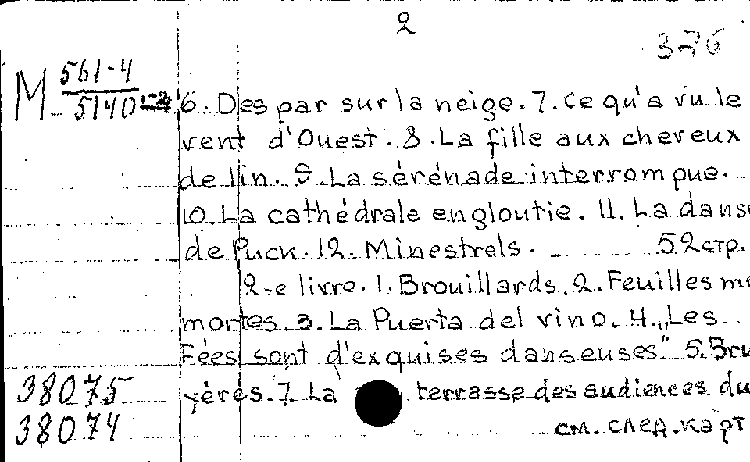 2
376
M 561-4
5140
6. Des par sur la neige. 7. Ce qu'a vu le
vent d'Ouest. 8. La fille aux cheveux
de lin. 9. La sérénade interrompue.
10. La cathédrale engloutie. 11. La dans
de Puck. 12. Minestrels. 52 стр.
2-e livre. 1. Brouillards. 2. Feuilles m
mortes. 3. La Puerta del vino. 4. „Les
Fées sont d'exquises danseuses". 5. Bru
yéres. 7. La terrasse des audiences du
38075
38074
см. след. карт